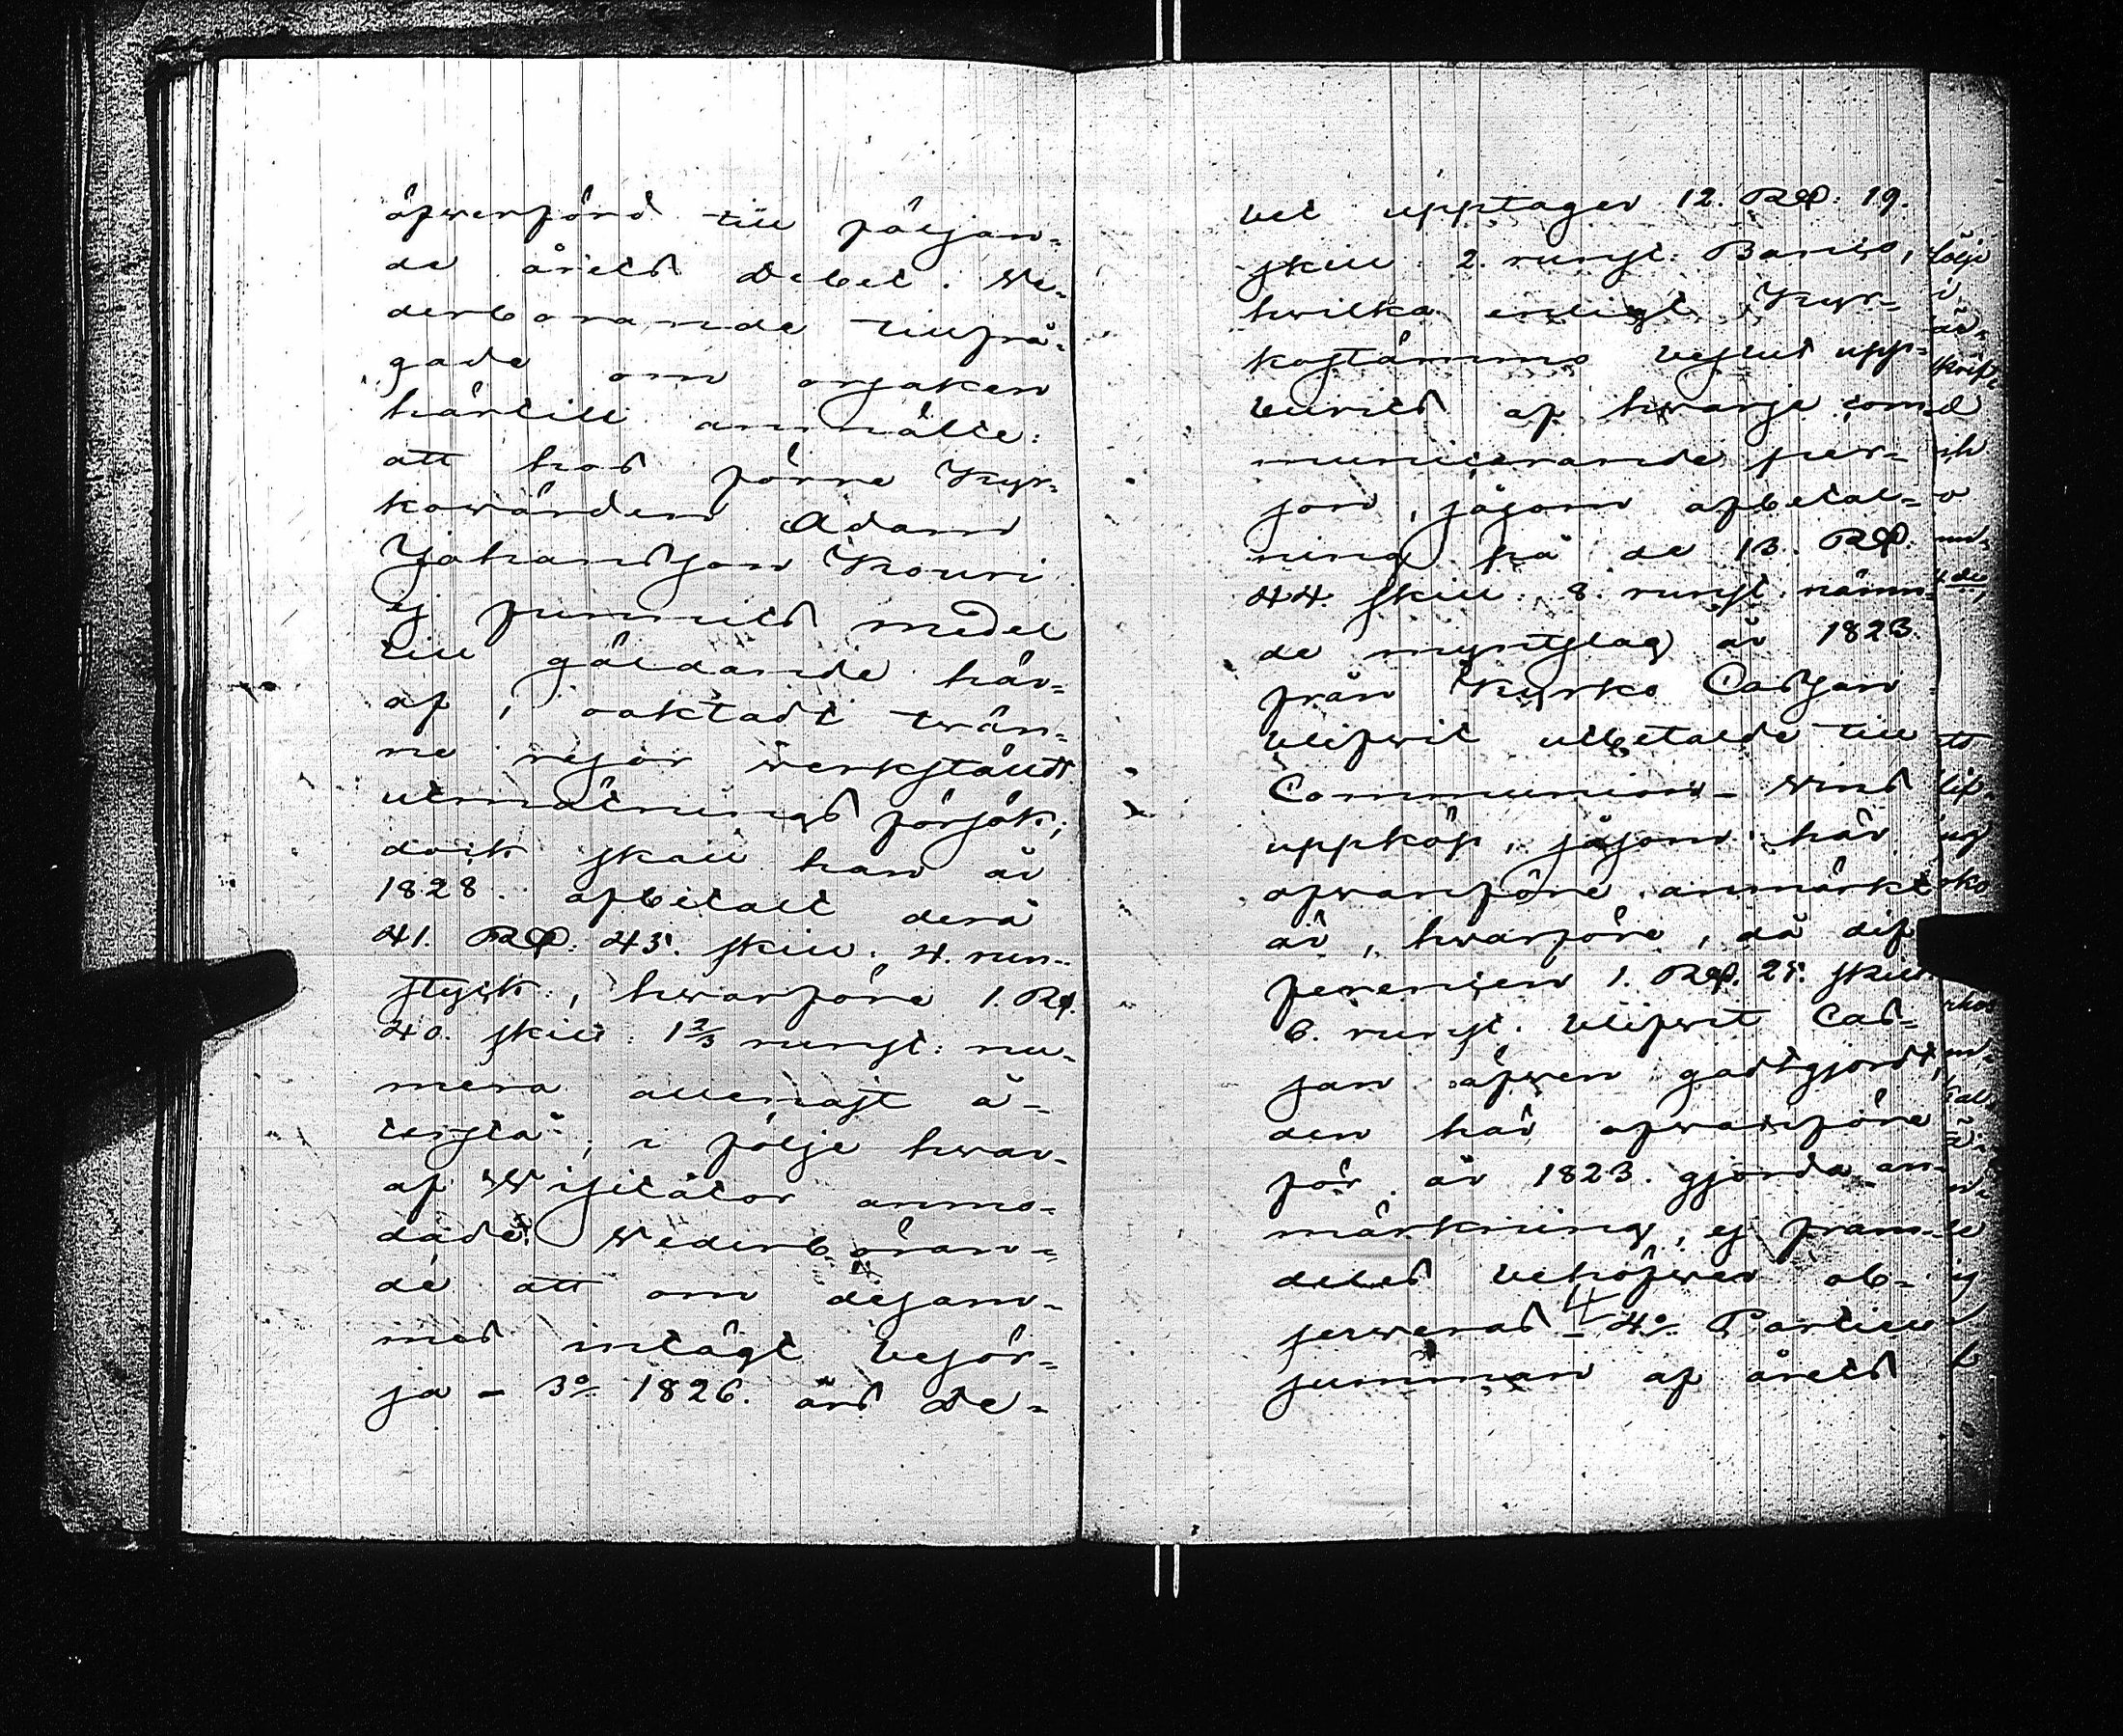 öfwerförd till följan-
de årets Debet. We-
derbörande tillfrå-
gade om orsaken
härtill anmälte:
att hos förre Kyr-
kowärden Adam
Johansson Kouri
ej funnits medel
till gäldande här-
af, oaktadt twän-
ne resor werkstäldt
utmätnings försök;
dock skall han år
1828. afbetalt derå
41. RD. 45. skill. 4. run-
styck., hwarföre 1. RD.
40. skill: 1 2/3 runst: nu-
mera allenast å-
terstå; i följe hwar-
af Wisitator anmo-
dade Wederböran-
de att om desam-
mas intägt besör-
ja – 3o 1826. års De-
bet upptager 12. RD. 19.
skill. 2. runst: Banco,
hwilka enligt Kyr-
kostämmo beslut upp-
burits af hwarje com-
municerande per-
son, såsom afbetal-
ning på de 13. RD.
44. skill. 8. runst. nämn-
de myntslag år 1823.
från Kyrko Cassan
blifwit utbetalde till
Communion-wins
uppköp, såsom här
ofwanföre anmärkt
är, hwarföre, då dif-
ferencen 1. RD. 25. skill.
6. runst. blifwit Cas-
san äfwen godtgjordt,
den här ofwanföre
för år 1823. gjorda an-
märkning, ej fram-
deles behöfwer ob-
serveras – 4o. Partiell
summan af årets